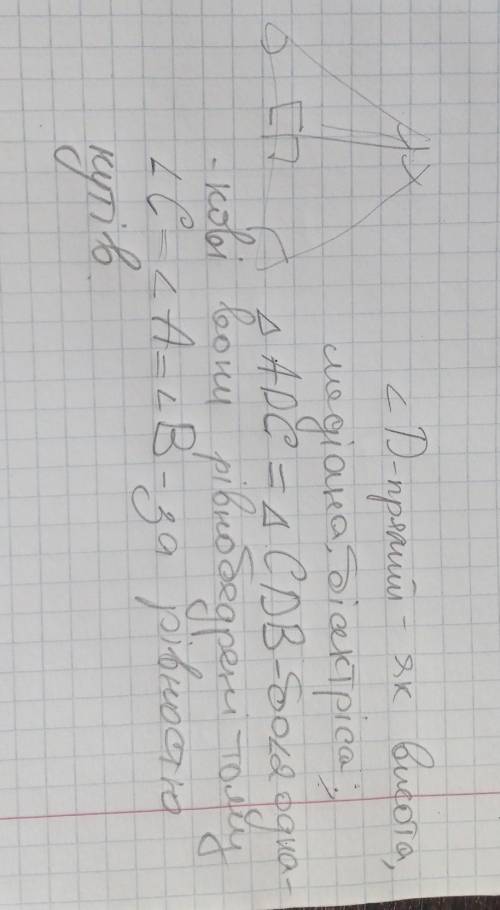 ∠D-прямий - як висота,
медіана, бісектріса;
△ADC = △CDB - бо 2 одна-
-кові вони рівнобедрені тому
∠C = ∠A = ∠B - за рівністю
кутів